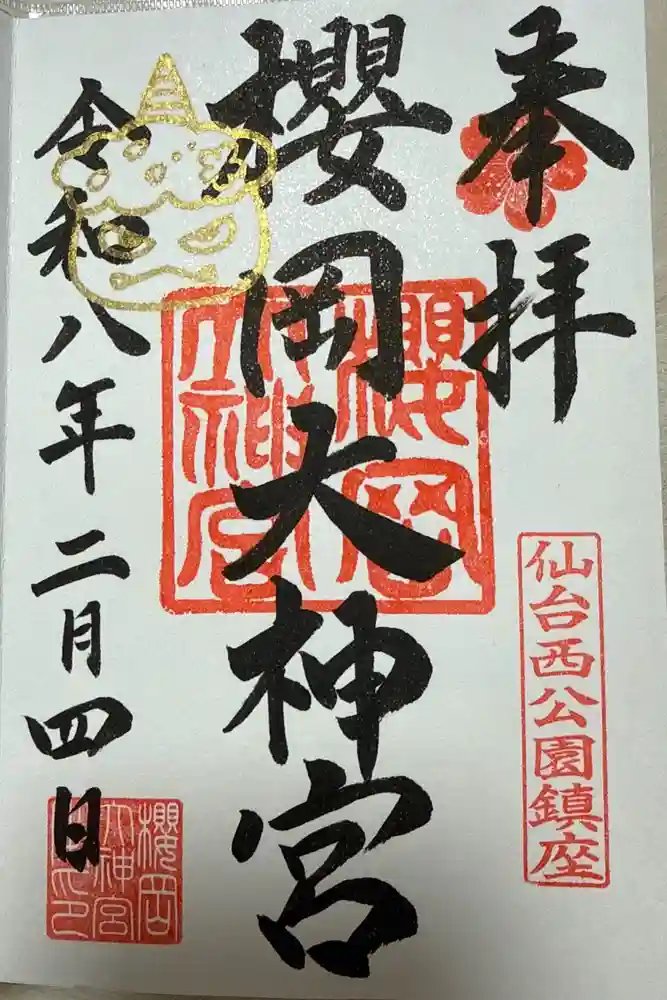 奉拝
仙台西公園鎮座
櫻岡大神宮
櫻岡
大神宮
令和八年二月四日
櫻岡
大神宮
之印